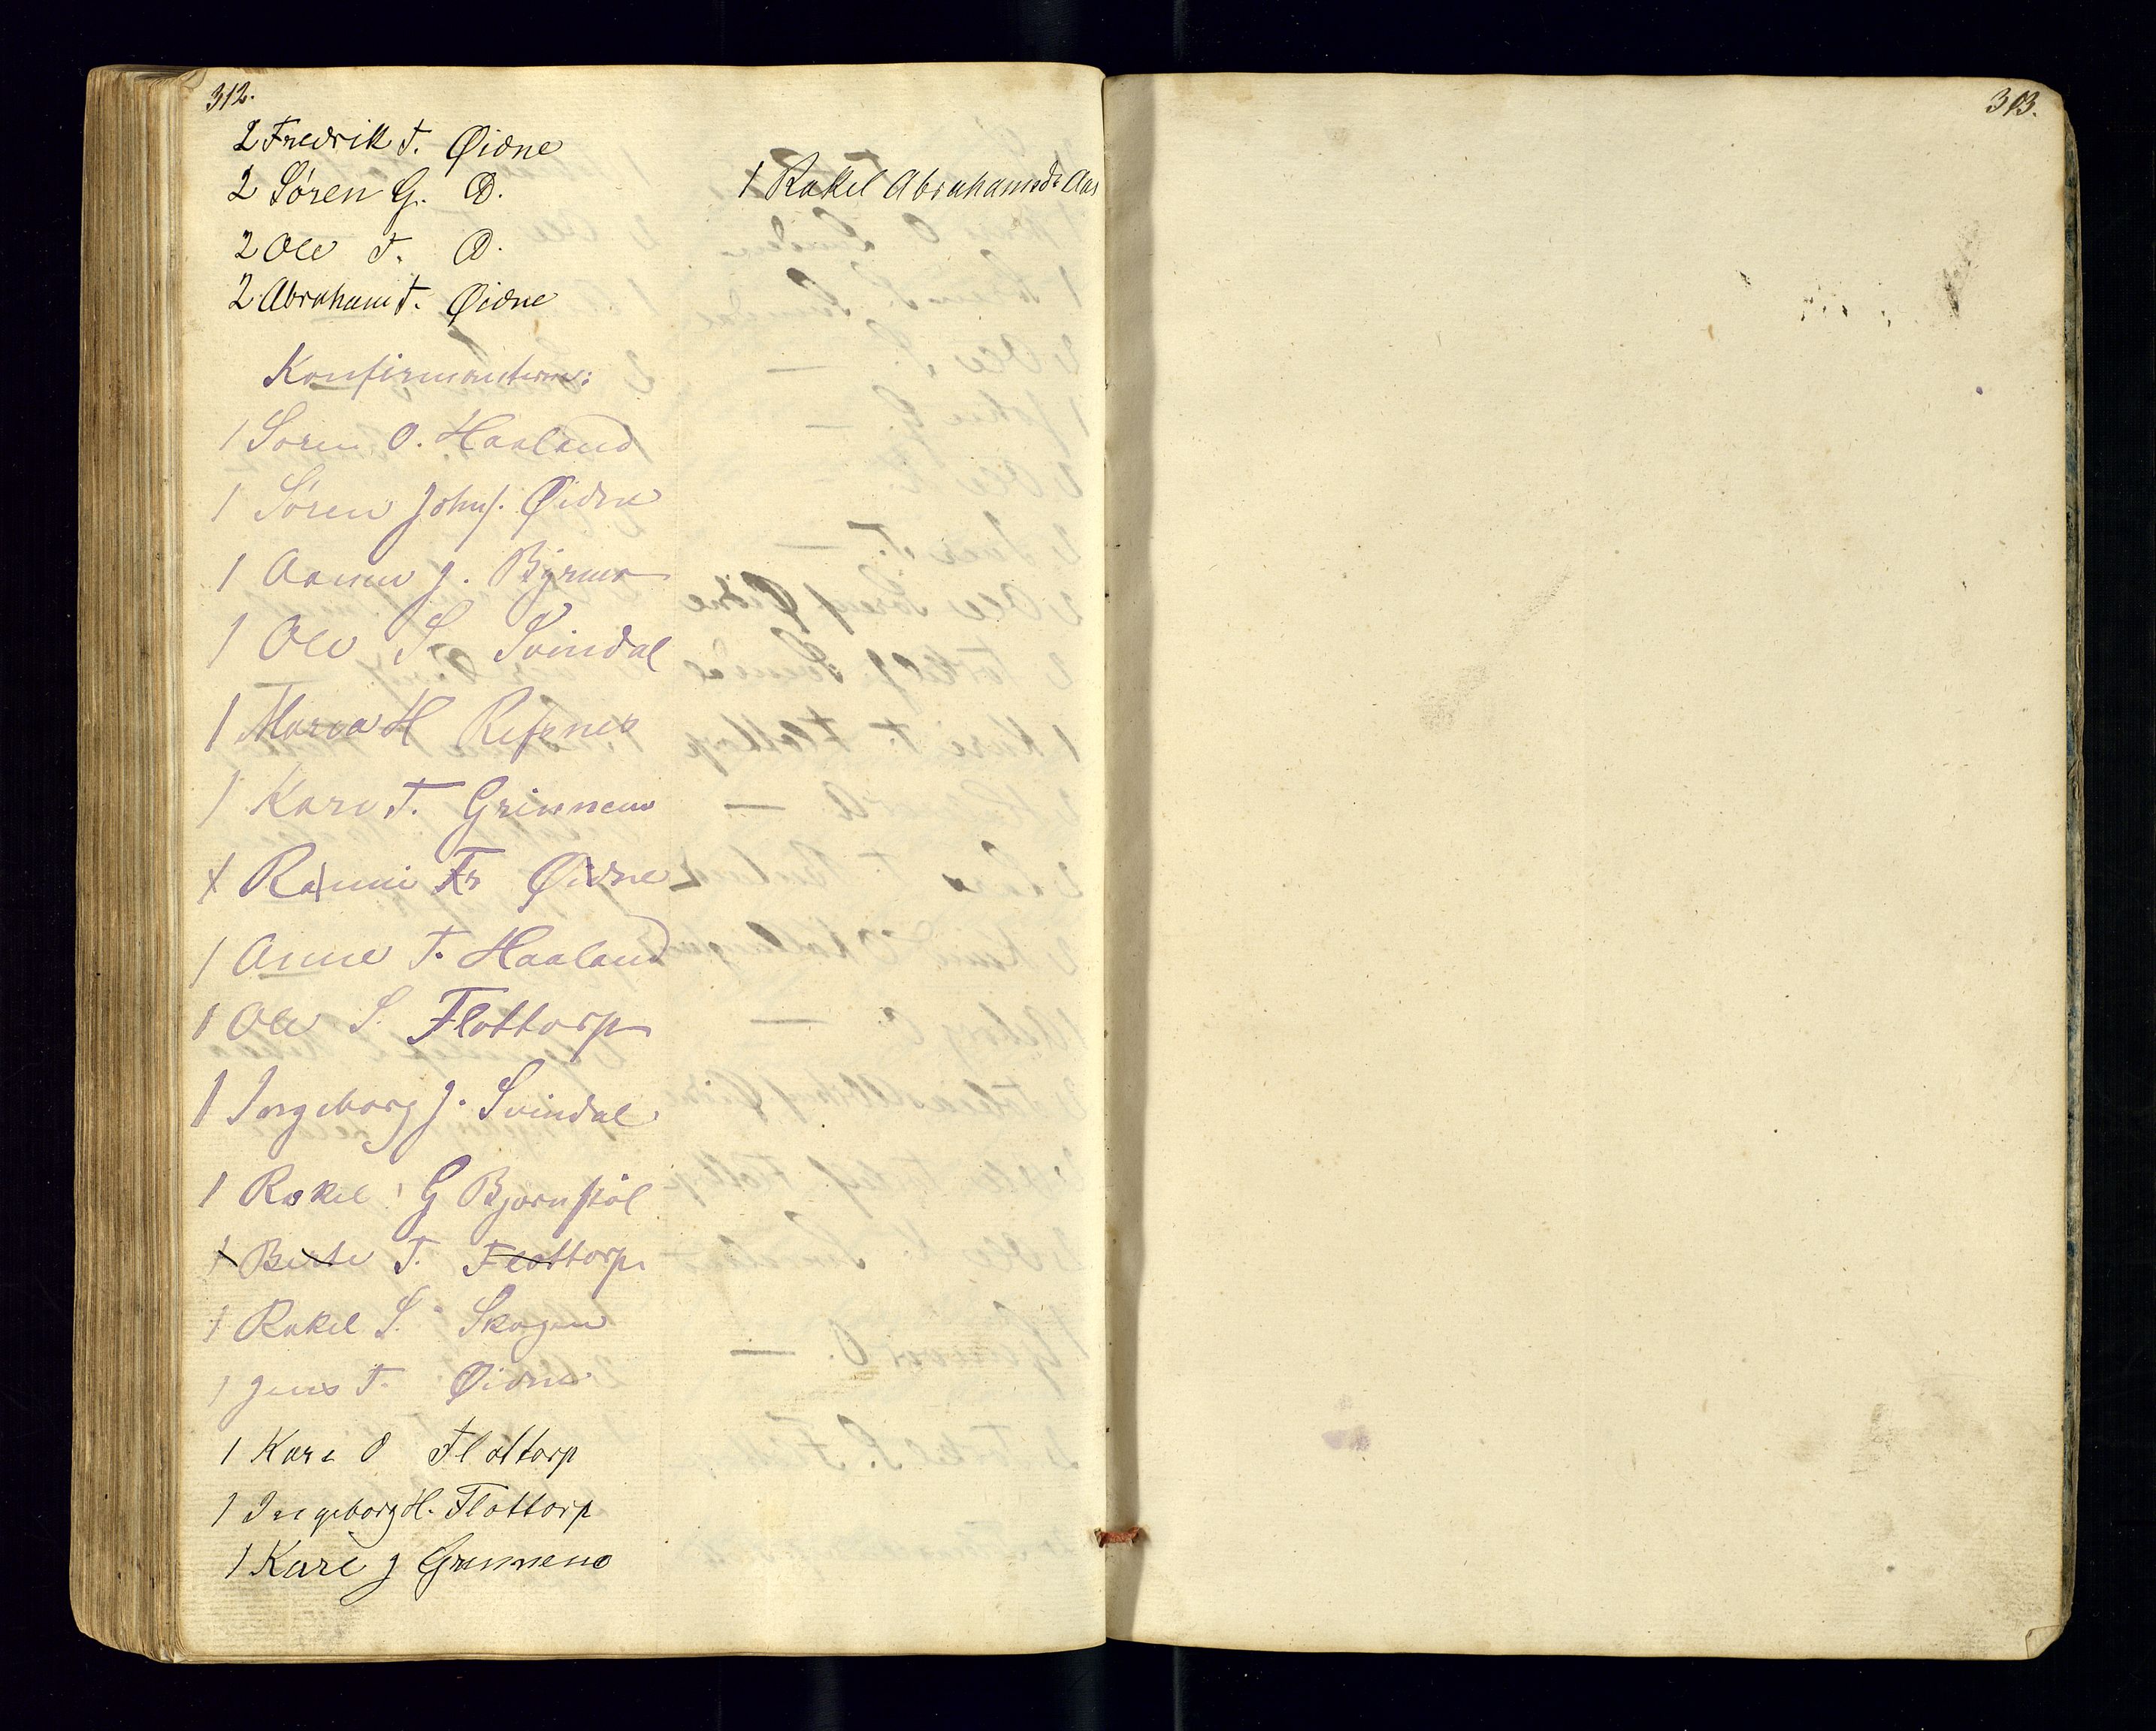 312.
2 Fredrik T. Øidne
2 Søren G. D.
2 Ole T. D.
2 Abraham T. Øidne
1 Rakel Abrahamsdr Aas
Konfirmanterne:
1 Soren O. Haaland
1 Søren Johns. Øidne
1 Aanen J. Byrmo
1 Ole S. Svindal
1 Maria H Refsnes
1 Kari T. Grinnem
1 Ranni Fr Øidne
1 Anne T. Haaland
1 Ole S. Flottorp
1 Ingeborg J. Svindal
1 Rakel G Bjornstøl
1 Berte T. Flottorp.
1 Rakel S. Skogen
1 Jens T. Øidne
1 Kari O Flottorp
1 Ingeborg H. Flottorp
1 Kari J Grinnem
313.